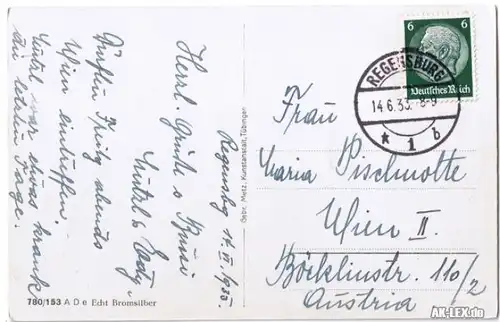 Regensbg 14. VI 1935.
Herzl. Grüße u Bussi
Dürften Freitag abends
Wien eintreffen.
war etwas krank
die letzten Tage.
780/153 A D e Echt Bromsilber
Gebr. Metz, Kunstanstalt, Tübingen
6 6
Deutsches Reich
REGENSBURG
14.6.35. 8-9
* 1 b
Frau
Maria Pischnotte
Wien II.
Böcklinstr. 110/2
Austria
AK-LEX.de